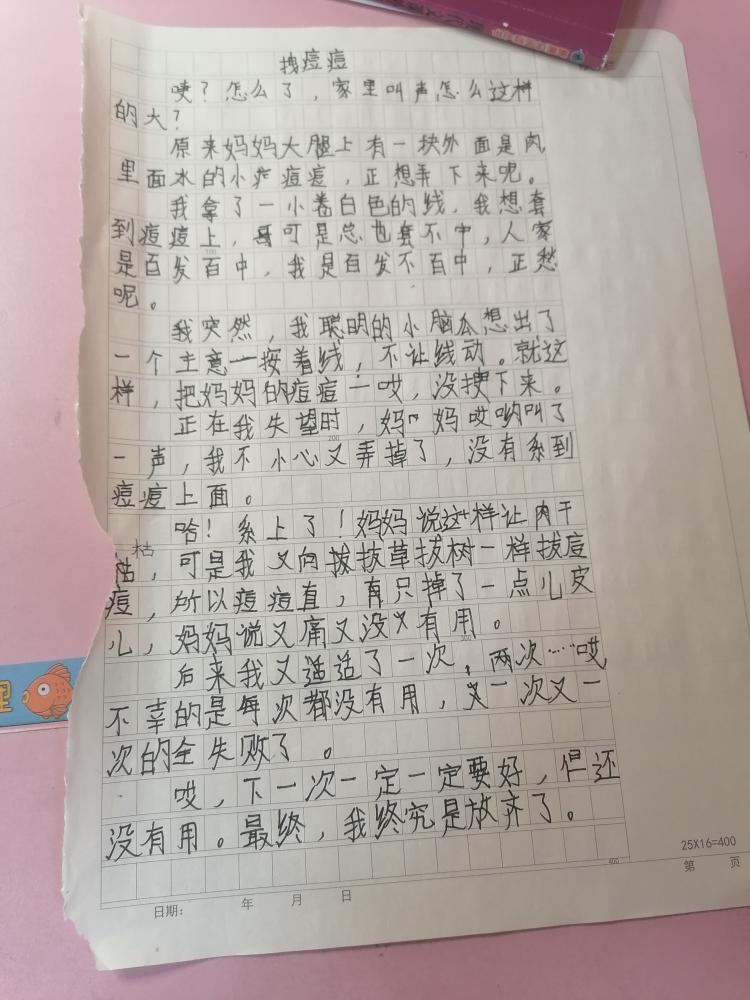 拽痘痘
咦？怎么了，家里叫声怎么这样
的大？
原来妈妈大腿上有一块外面是肉
里面水的小痘痘，正想弄下来呢。
我拿了一小卷白色的线，我想套
到痘痘上，可是总也套不中，人家
是百发百中，我是百发不百中，正愁
呢。
我突然，我聪明的小脑瓜想出了
一个主意一按着线，不让线动。就这
样，把妈妈的痘痘一哎，没拽下来。
正在我失望时，妈妈哎哟叫了
一声，我不小心又弄掉了，没有系到
痘痘上面。
哈！系上了！妈妈说这样让肉干
枯，可是我又向拔拔草拔树一样拔痘
痘，所以痘痘直，有只掉了一点儿皮
儿，妈妈说又痛又没有用。
后来我又适适了一次，两次……哎
不幸的是每次都没有用，又一次又一
次的全失败了。
哎，下一次一定一定要好，但还
没有用。最终，我终究是放齐了。
25X16=400
第 页
日期： 年 月 日
200
300
400